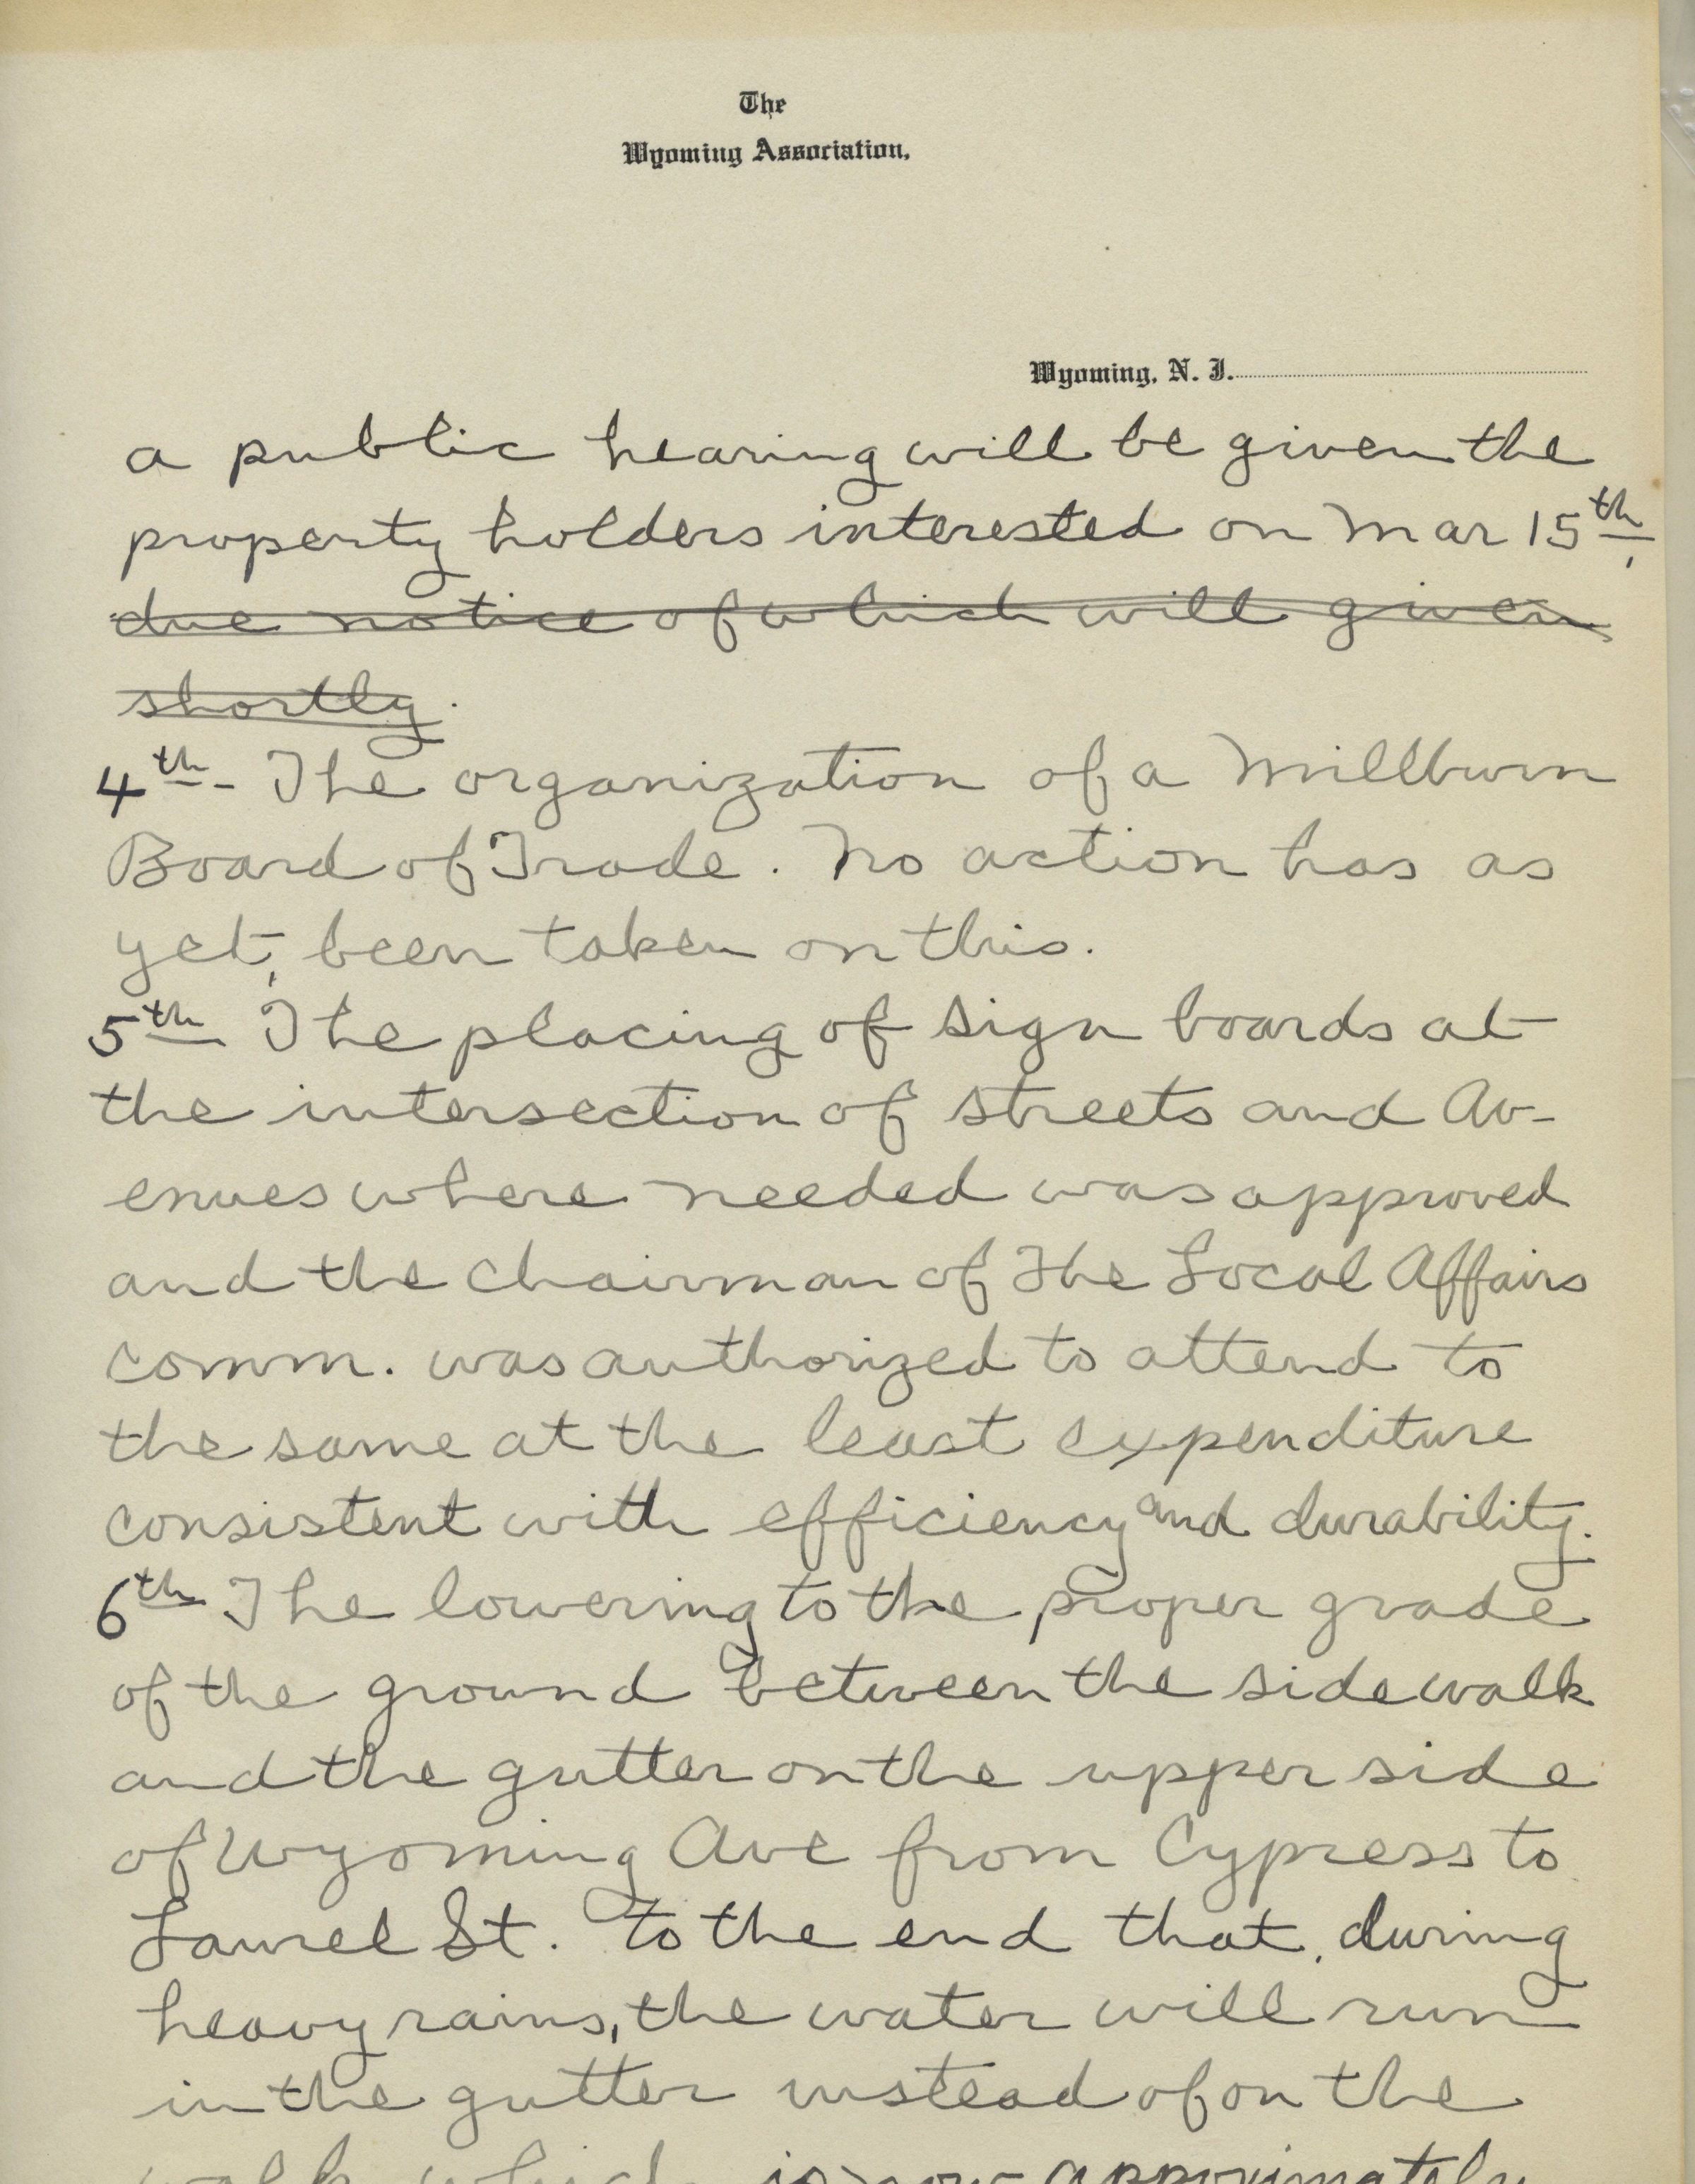 The
Wyoming Association.
Wyoming, N. J.
a public hearing will be given the
property holders interested on Mar 15th,
due notice of which will given
shortly.
4th- The organization of a Millburn
Board of Trade. No action has as
yet, been taken on this.
5th The placing of sign boards at
the intersection of streets and Av-
enues where needed was approved
and the chairman of The Local Affairs
comm. was authorized to attend to
the same at the least expenditure
consistent with efficiency and durability.
6th The lowering to the proper grade
of the ground between the sidewalk
and the gutter on the upper side
of Wyoming Ave from Cypress to
Laurel St. to the end that, during
heavy rains, the water will run
in the gutter instead of on the
walk which is now approximately